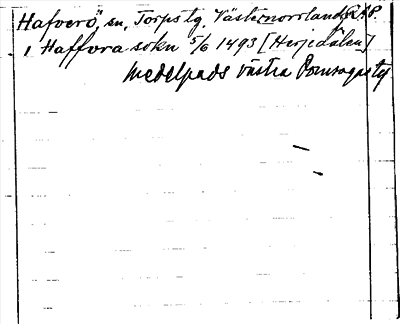 Hafverö, sn, Torps tg. Västernorrlands
i Haffvra sokn 5/6 1493 [Herjedalen]
Medelpads västra Domsagas tg